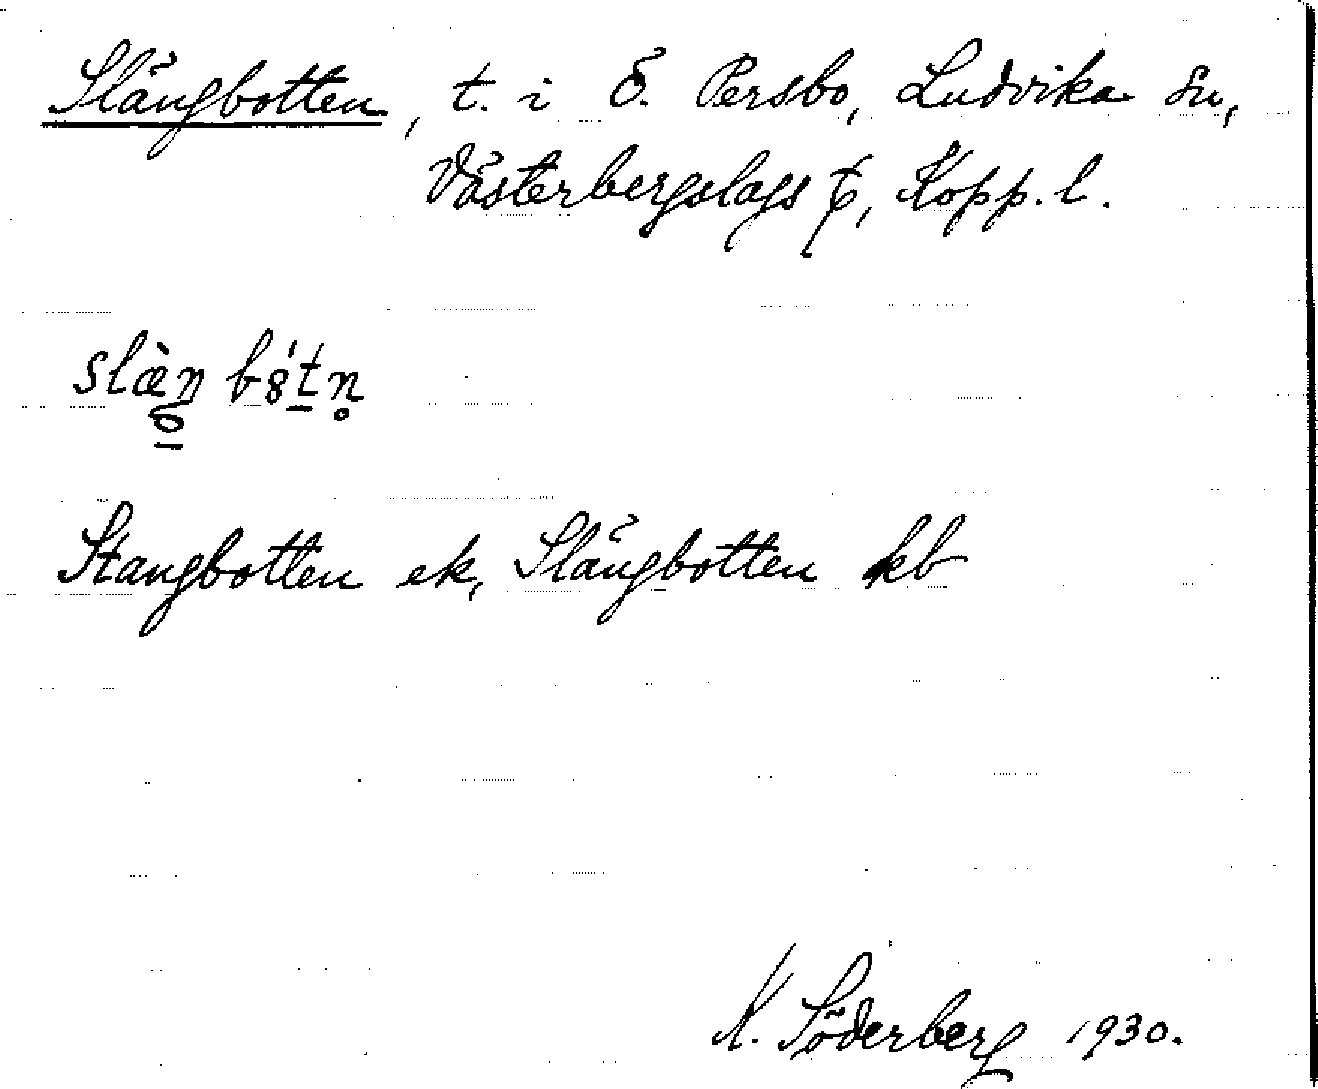 Slängbotten, t. i Ö. Persbo, Ludvika sn,
Västerbergslags t, Kopp. l.
slæ̀ŋ b8́tn̥
Stangbotten ek, Slängbotten kb
K. Söderberg 1930.